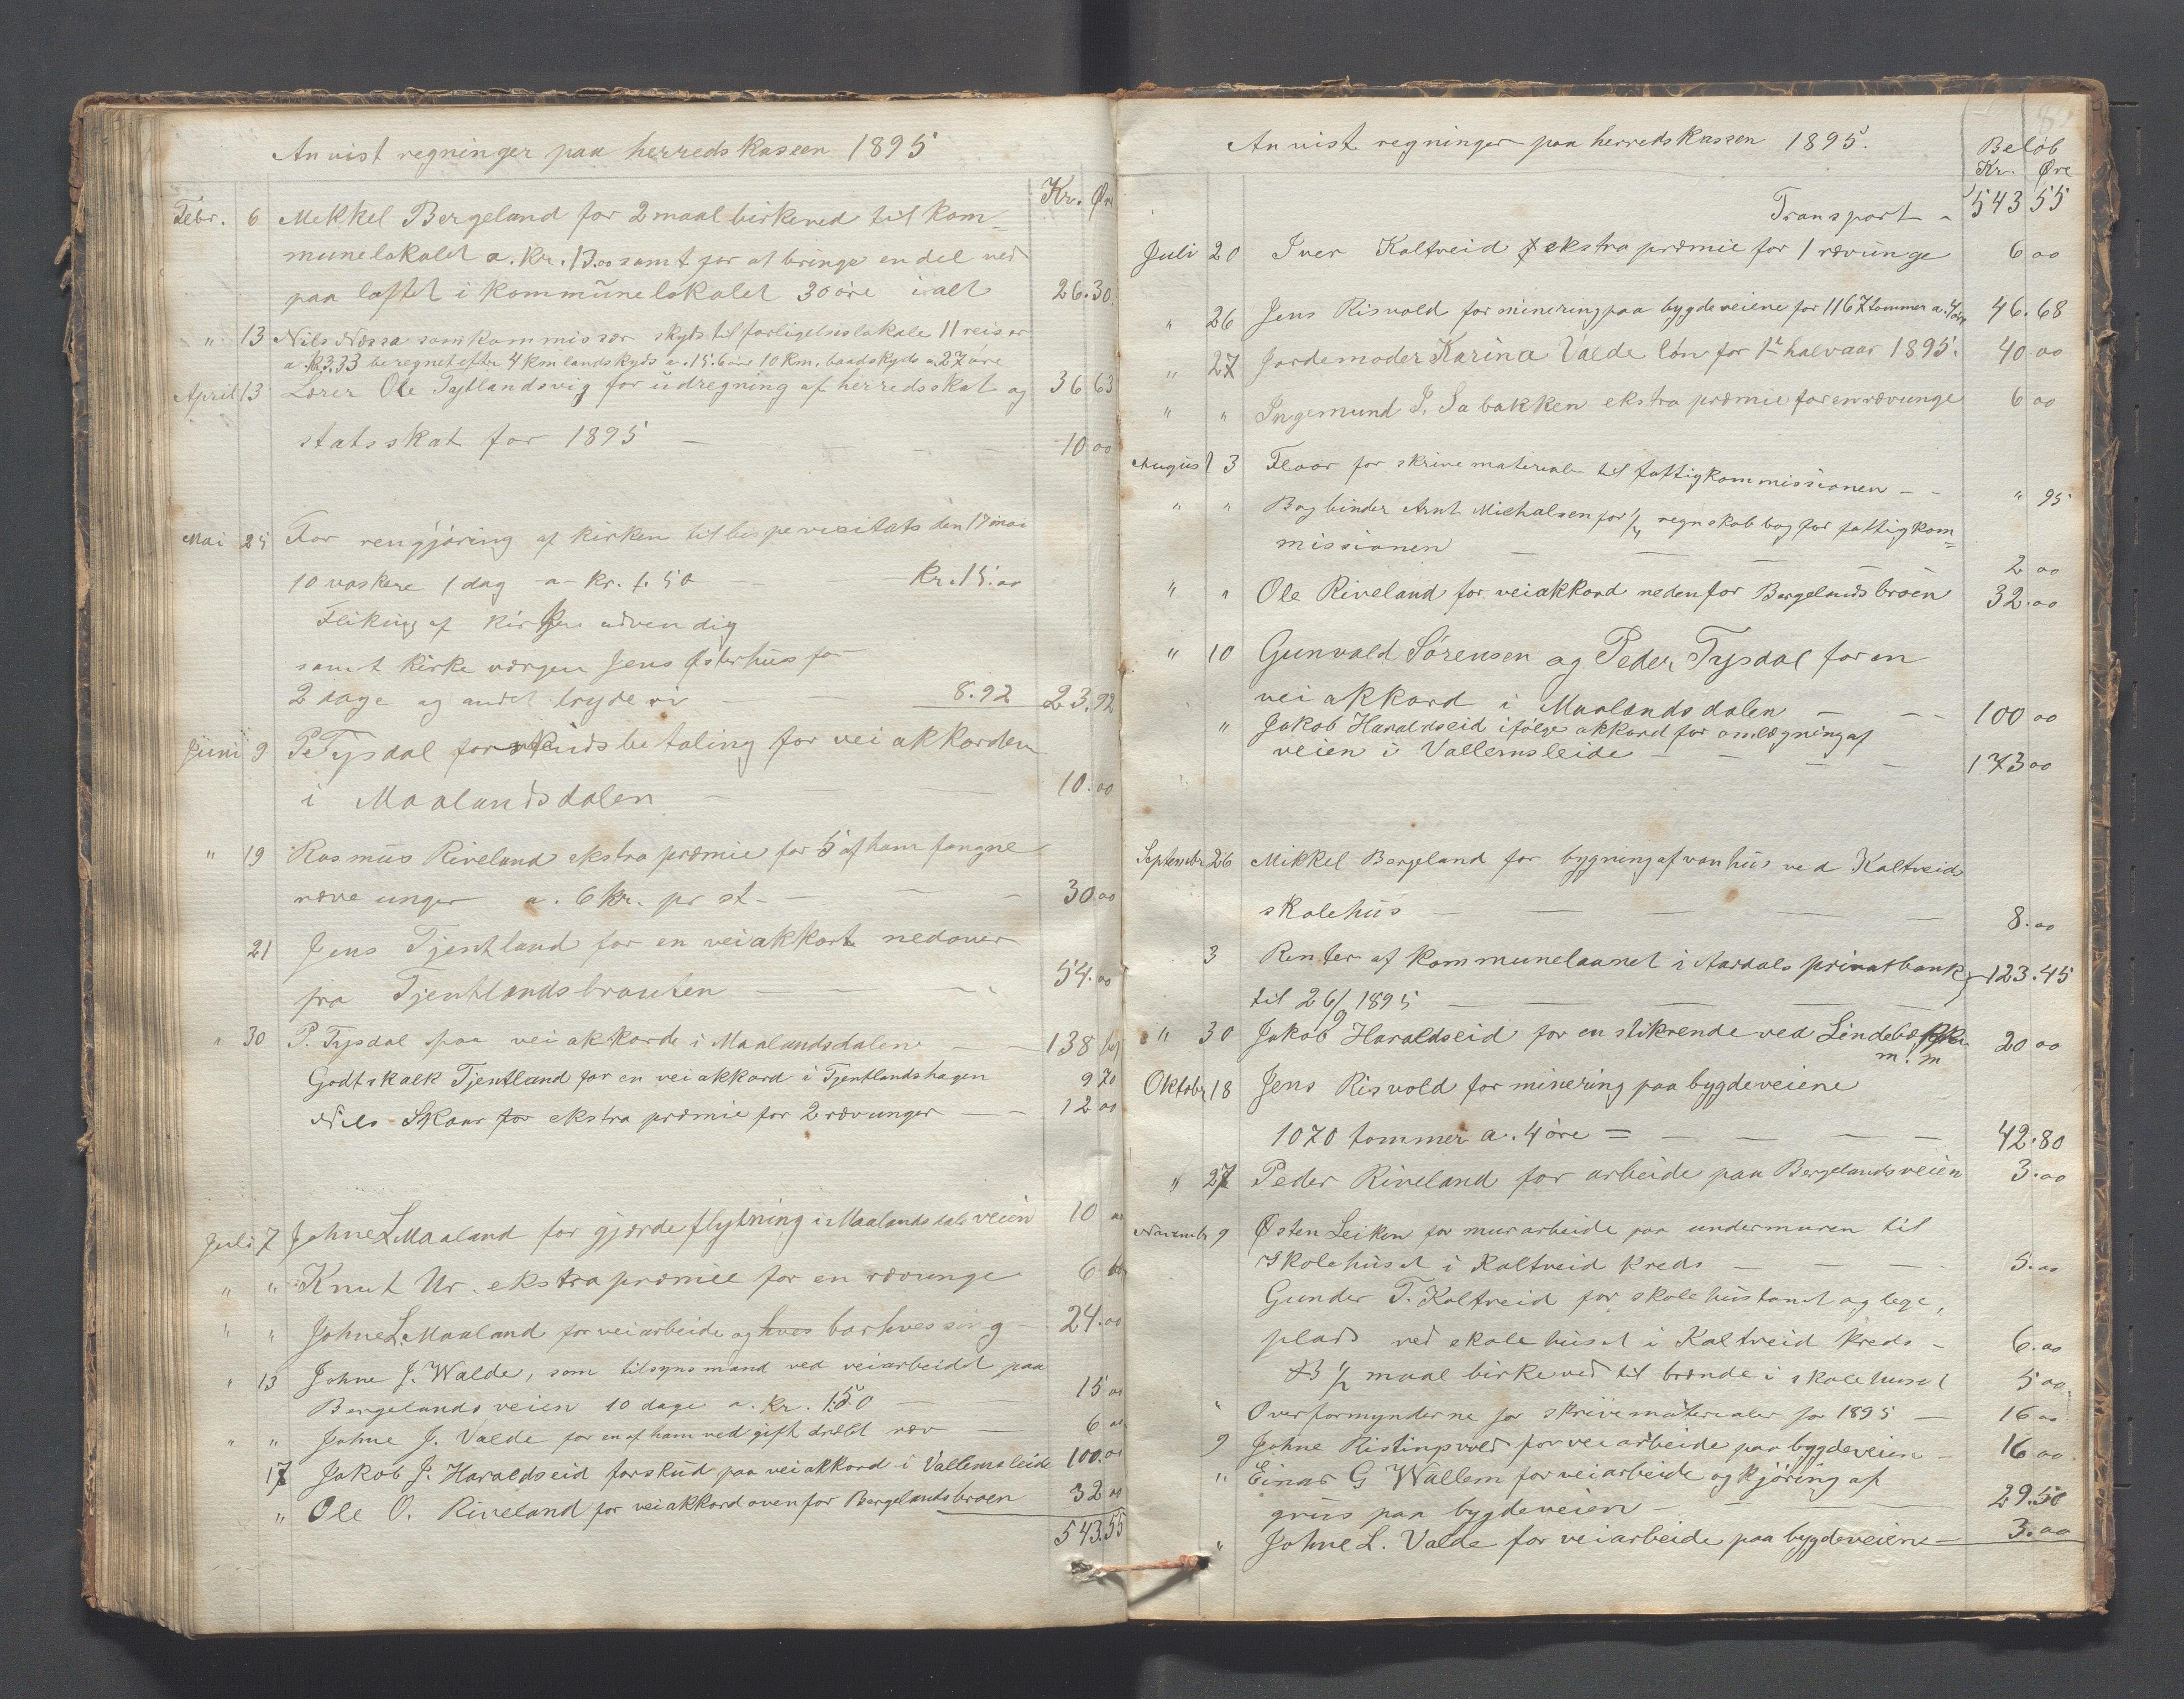 Anvist regninger paa herredskassen 1895
Kr. Øre
Febr. 6 Mekkel Bergeland for 2 maal birkeved til kom=
munelokalet a. Kr. 13.00 samt for at bringe en del ved
paa loftet i kommunelokalet 30 öre ialt 26.30.
" 13 Nils Nessa som kommissær skyds til forligelseslokale 11 reiser
a. kr 3.33 beregnet efter 4 km landskyds a. 15.6 öre 10 km. baadskyds a 27 öre
April 13 Lærer Ole Tytlandsvig for udregning af herredsskat og 36 63
statsskat for 1895 — 10 00
Mai 25 For rengjöring af kirken til bispevisitats den 17 mai
10 vaskere 1 dag a Kr. 1.50 — Kr. 15.00
Fliking af kirken udvendig
samt kirkeværgen Jens Østerhus for
2 dage og andet bryderi — 8.92 23.92
Juni 9 P Tysdal forskudsbetaling for vei akkorden
i Maalandsdalen — 10.00
" 19 Rasmus Riveland ekstra præmie for 5 af ham fangne
ræveunger a. 6 kr. pr st. — 30 00
21 Jens Tjentland for en veiakkort nedover
fra Tjentlandsbrauten — 54.00
" 30 P. Tysdal paa vei akkorde i Maalandsdalen — 138
Godtskalk Tjentland for en vei akkord i Tjentlandshagen 9 70
Nils Skaar for ekstra præmie for 2 rævunger — 12 00
Juli 7 Johne L Maaland for gjærdeflytning i Maalandsdalsveien 10
" " Knut Ur. ekstra præmie for en rævunge 6
" " Johne L. Maaland for veiarbeide og hves borhvessing — 24.00
" 13 Johne J. Walde, som tilsynsmand ved veiarbeidet paa
Bergelands veien 10 dage a. Kr. 1.50 — 15 00
" " Johne J. Valde for en af ham ved gift dræbt ræv — 6 00
17 Jakob J. Haraldseid forskud paa veiakkord i Vallemsleide 100.00
" Ole O. Riveland for veiakkord ovenfor Bergelandsbroen 32 00
543.55
Anvist regninger paa herredskassen 1895.
Belöb
Kr. Øre
Transport " 543 55
Juli 20 Iver Kaltveid f ekstra præmie for 1 rævunge 6 00
" 26 Jens Risvold for minering paa bygdeveiene for 1167 tommer a. 4 öre 46.68
" 27 Jordemoder Karina Valde lön for 1ste halvaar 1895. 40 00
" " Ingemund I. Sabakken ekstra præmie for en rævunge 6 00
August 3 Floor for skrivematerial til fattigkommissionen — " 95
" " Bogbinder Arnt Michalsen for 1/4 regnskabbog for fattigkom=
missionen — 2 00
" " Ole Riveland for veiakkord nedenfor Bergelandsbroen 32.00
" 10 Gunvald Sörensen og Peder Tysdal for en
vei akkord i Maalandsdalen — 100 00
" Jakob Haraldseid ifölge akkord for omlægning af
veien i Vallemsleide — 173 00
September 26 Mikkel Bergeland for bygning af vanhus ved Kaltveid
skolehus — 8.00
3 Renter af kommunelaanet i Aardals privatbank 123.45
til 26/9 1895 —
" 30 Jakob Haraldseid for en stikrende ved Lindebækken 20 00
m. m
Oktober 18 Jens Risvold for minering paa bygdeveiene
1070 tommer a. 4 öre = — 42.80
" 27 Peder Riveland for arbeide paa Bergelandsveien 3.00
November 9 Østen Leiken for murarbeide paa undermuren til
skolehuset i Kaltveid kreds — 5.00
Gunder T. Kaltveid for skolehustomt og lege,
plads ved skolehuset i Kaltveid kreds — 6.00
1/2 maal birkeved til brænde i skolehuset 5 00
" Overformynderne for skrivematerialer for 1895 — 16 00
9 Johne Ristingsvold for veiarbeide paa bygdeveien — 16 00
" Einar G Wallem for veiarbeide og kjöring af
grus paa bygdeveien — 29.50
" Johne L. Valde for veiarbeide paa bygdeveiene — 3.00